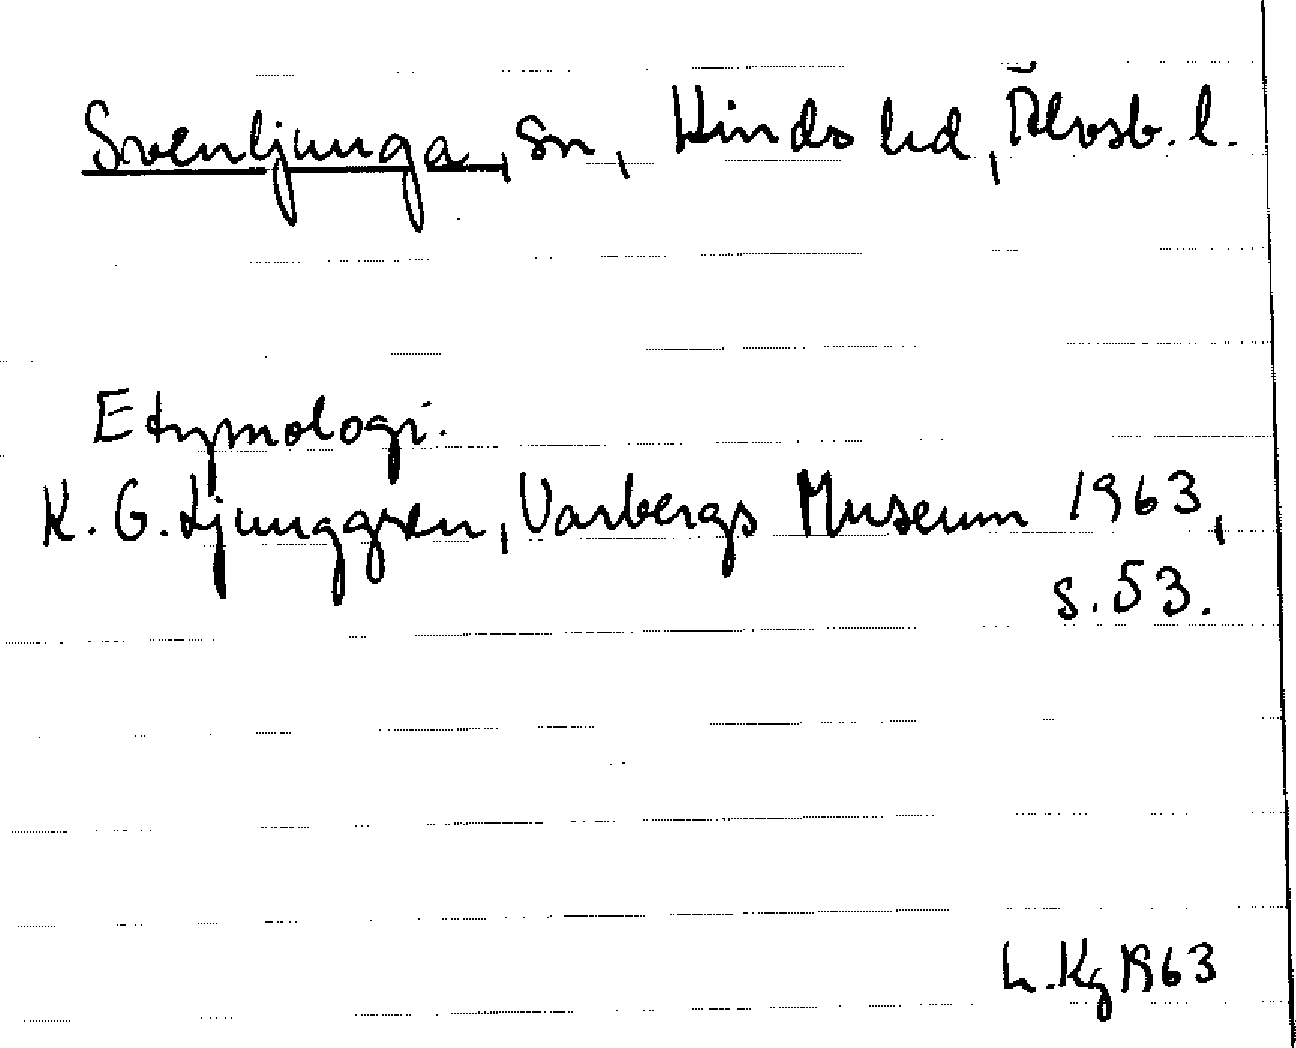 Svenljunga, sn, Kinds hd, Älvsb. l.
Etymologi.
K. G. Ljunggren, Varbergs Museum 1963,
s. 53.
L. Kg 1963